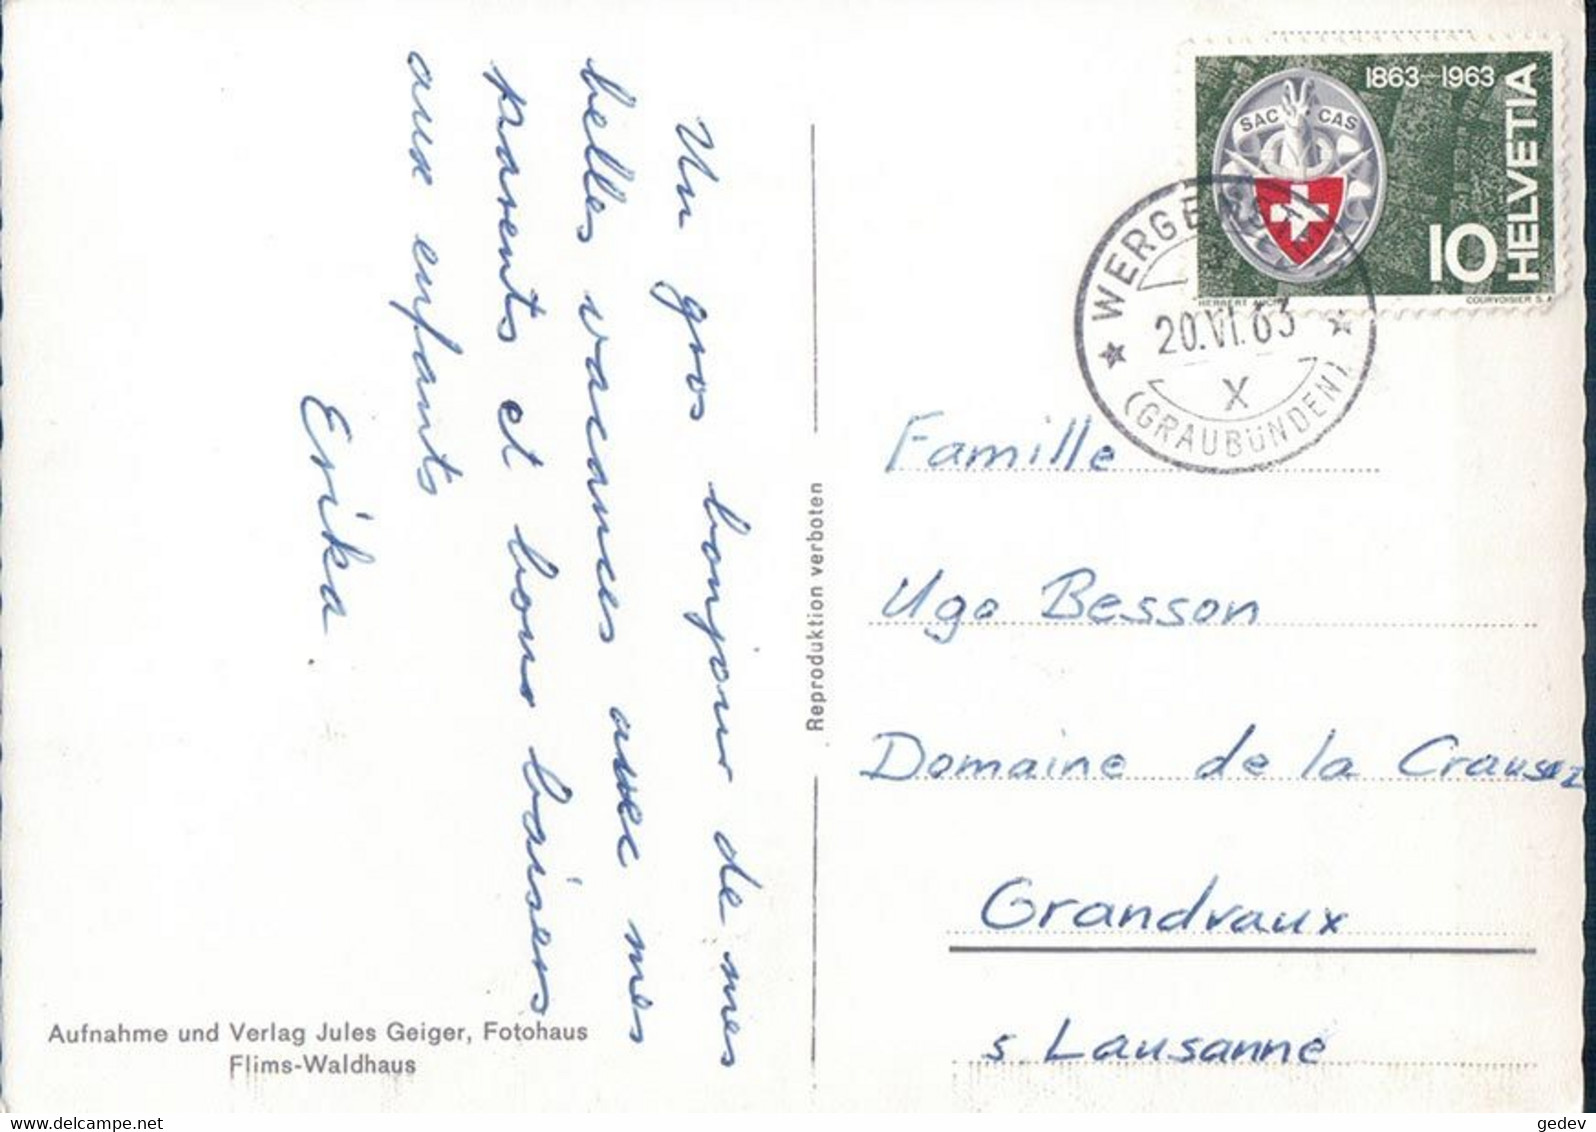 Un gros bonjour de mes
belles vacances avec mes
parents et bons baisers
aux enfants
Erika.
Aufnahme und Verlag Jules Geiger, Fotohaus
Flims-Waldhaus
Reproduktion verboten
1863-1963
SAC CAS
10
HELVETIA
COURVOISIER S.A
20.VI.63
X
(GRAUBÜNDEN)
Famille
Ugo Besson
Domaine de la Crausaz
Grandvaux
s. Lausanne
www.delcampe.net
gedev